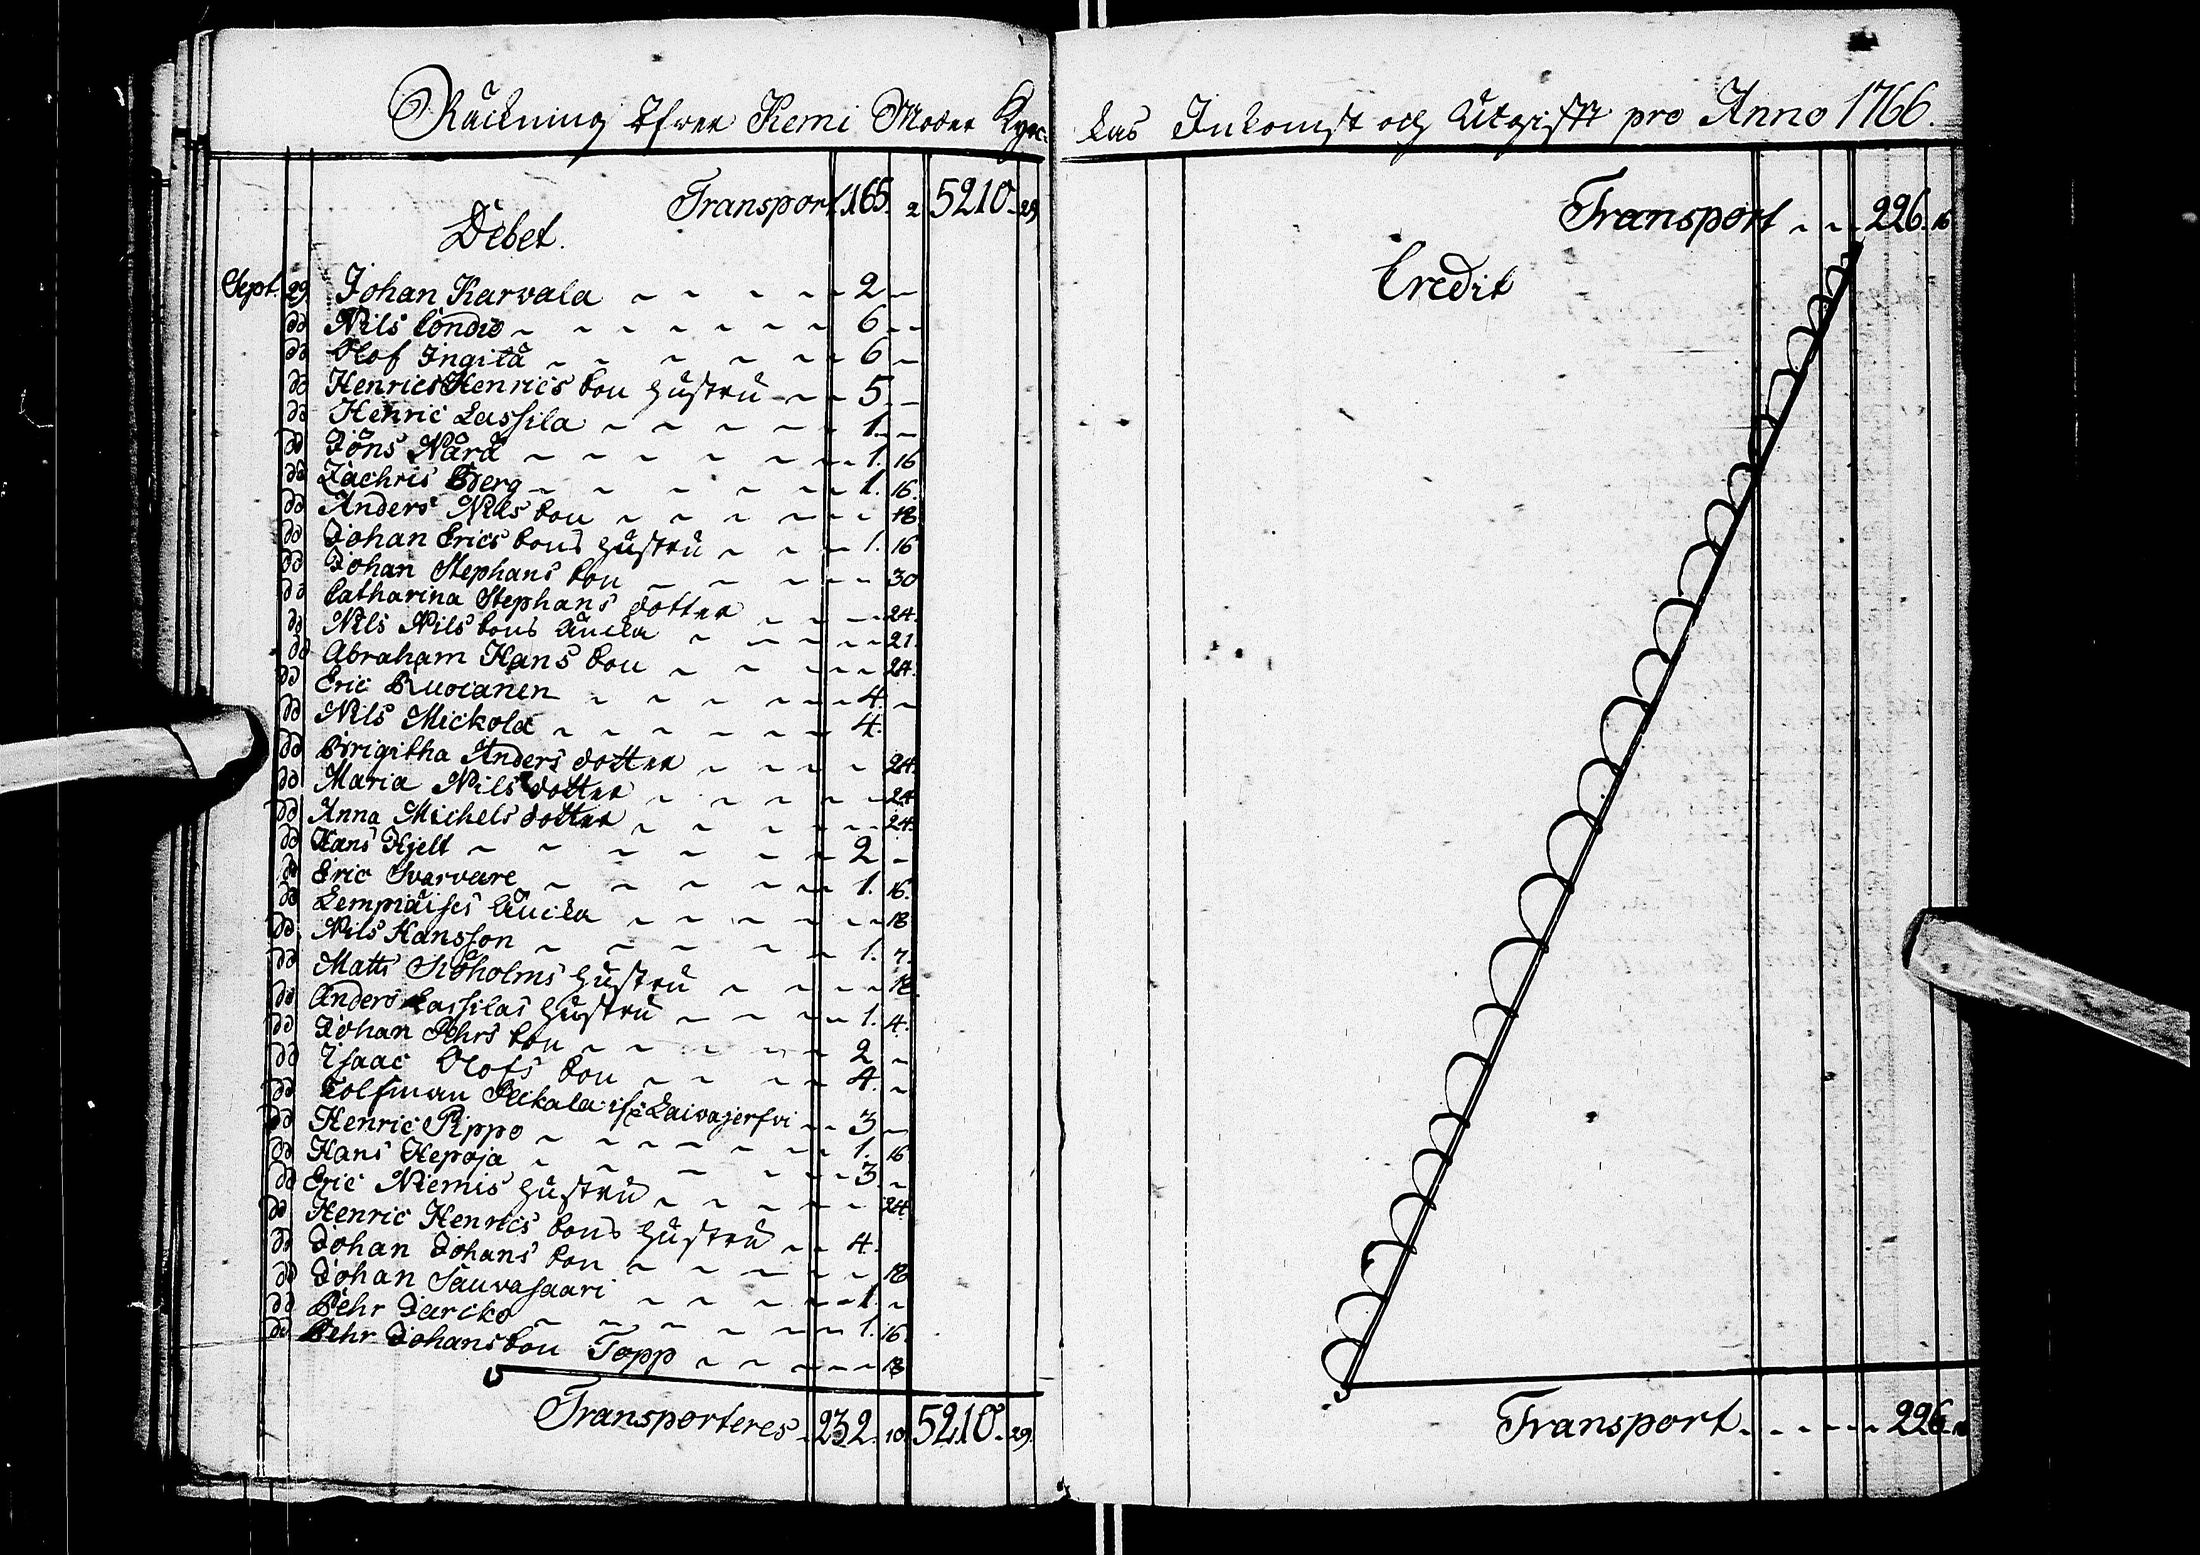 Räckning öfwer Kemi Moder Kyrc-
Transport 165. 2 5210. 29
Debet.
Sept. 29 Johan Karvala 2 -
dd Nils Condio 6 -
dd Olof Ingilä 6 -
dd Henrics Henrics son hustru 5 -
dd Henric Lassila 1. -
dd Jöns Närä 1. 16
dd Zachris Berg 1. 16.
dd Anders Nils son 18
dd Johan Erics sons hustru 1. 16
dd Johan Stephans son 30
dd Catharina Stephans dotter 24.
dd Nils Nils sons Äncka 21.
dd Abraham Hans son 24.
dd Eric Ruocanen 4. -
dd Nils Mickola 4.
dd Birigitha Anders dotter 24.
dd Maria Nils dotter 24
dd Anna Michels dotter 24.
dd Hans Hjelt 2 -
dd Eric Svarvare 1. 16.
dd Lempiäises Äncka 18
dd Nils Hansson 1. 7.
dd Matts Sjöholms hustru 18.
dd Anders Lassilas hustru 1. 4.
dd Johan Pehrs son 2 -
dd Isaac Olofs son 4. -
dd Tolfman Pekkala if: Laivajerfvi 3 -
dd Henric Pippo 1. 16
dd Hans Hepoja 3 -
dd Eric Niemis hustru 24
dd Henric Henrics sons hustru 4.
dd Johan Johans son 18
dd Johan Sauvasaari 1. -
dd Pehr Jarcko 1. 16.
dd Pehr Johans son Topp 18
Transporteres 232. 10. 5210. 29.
kas Inkomst och Utgifft pro Anno 1766.
Transport 226. 16
Credit
Transport 226.